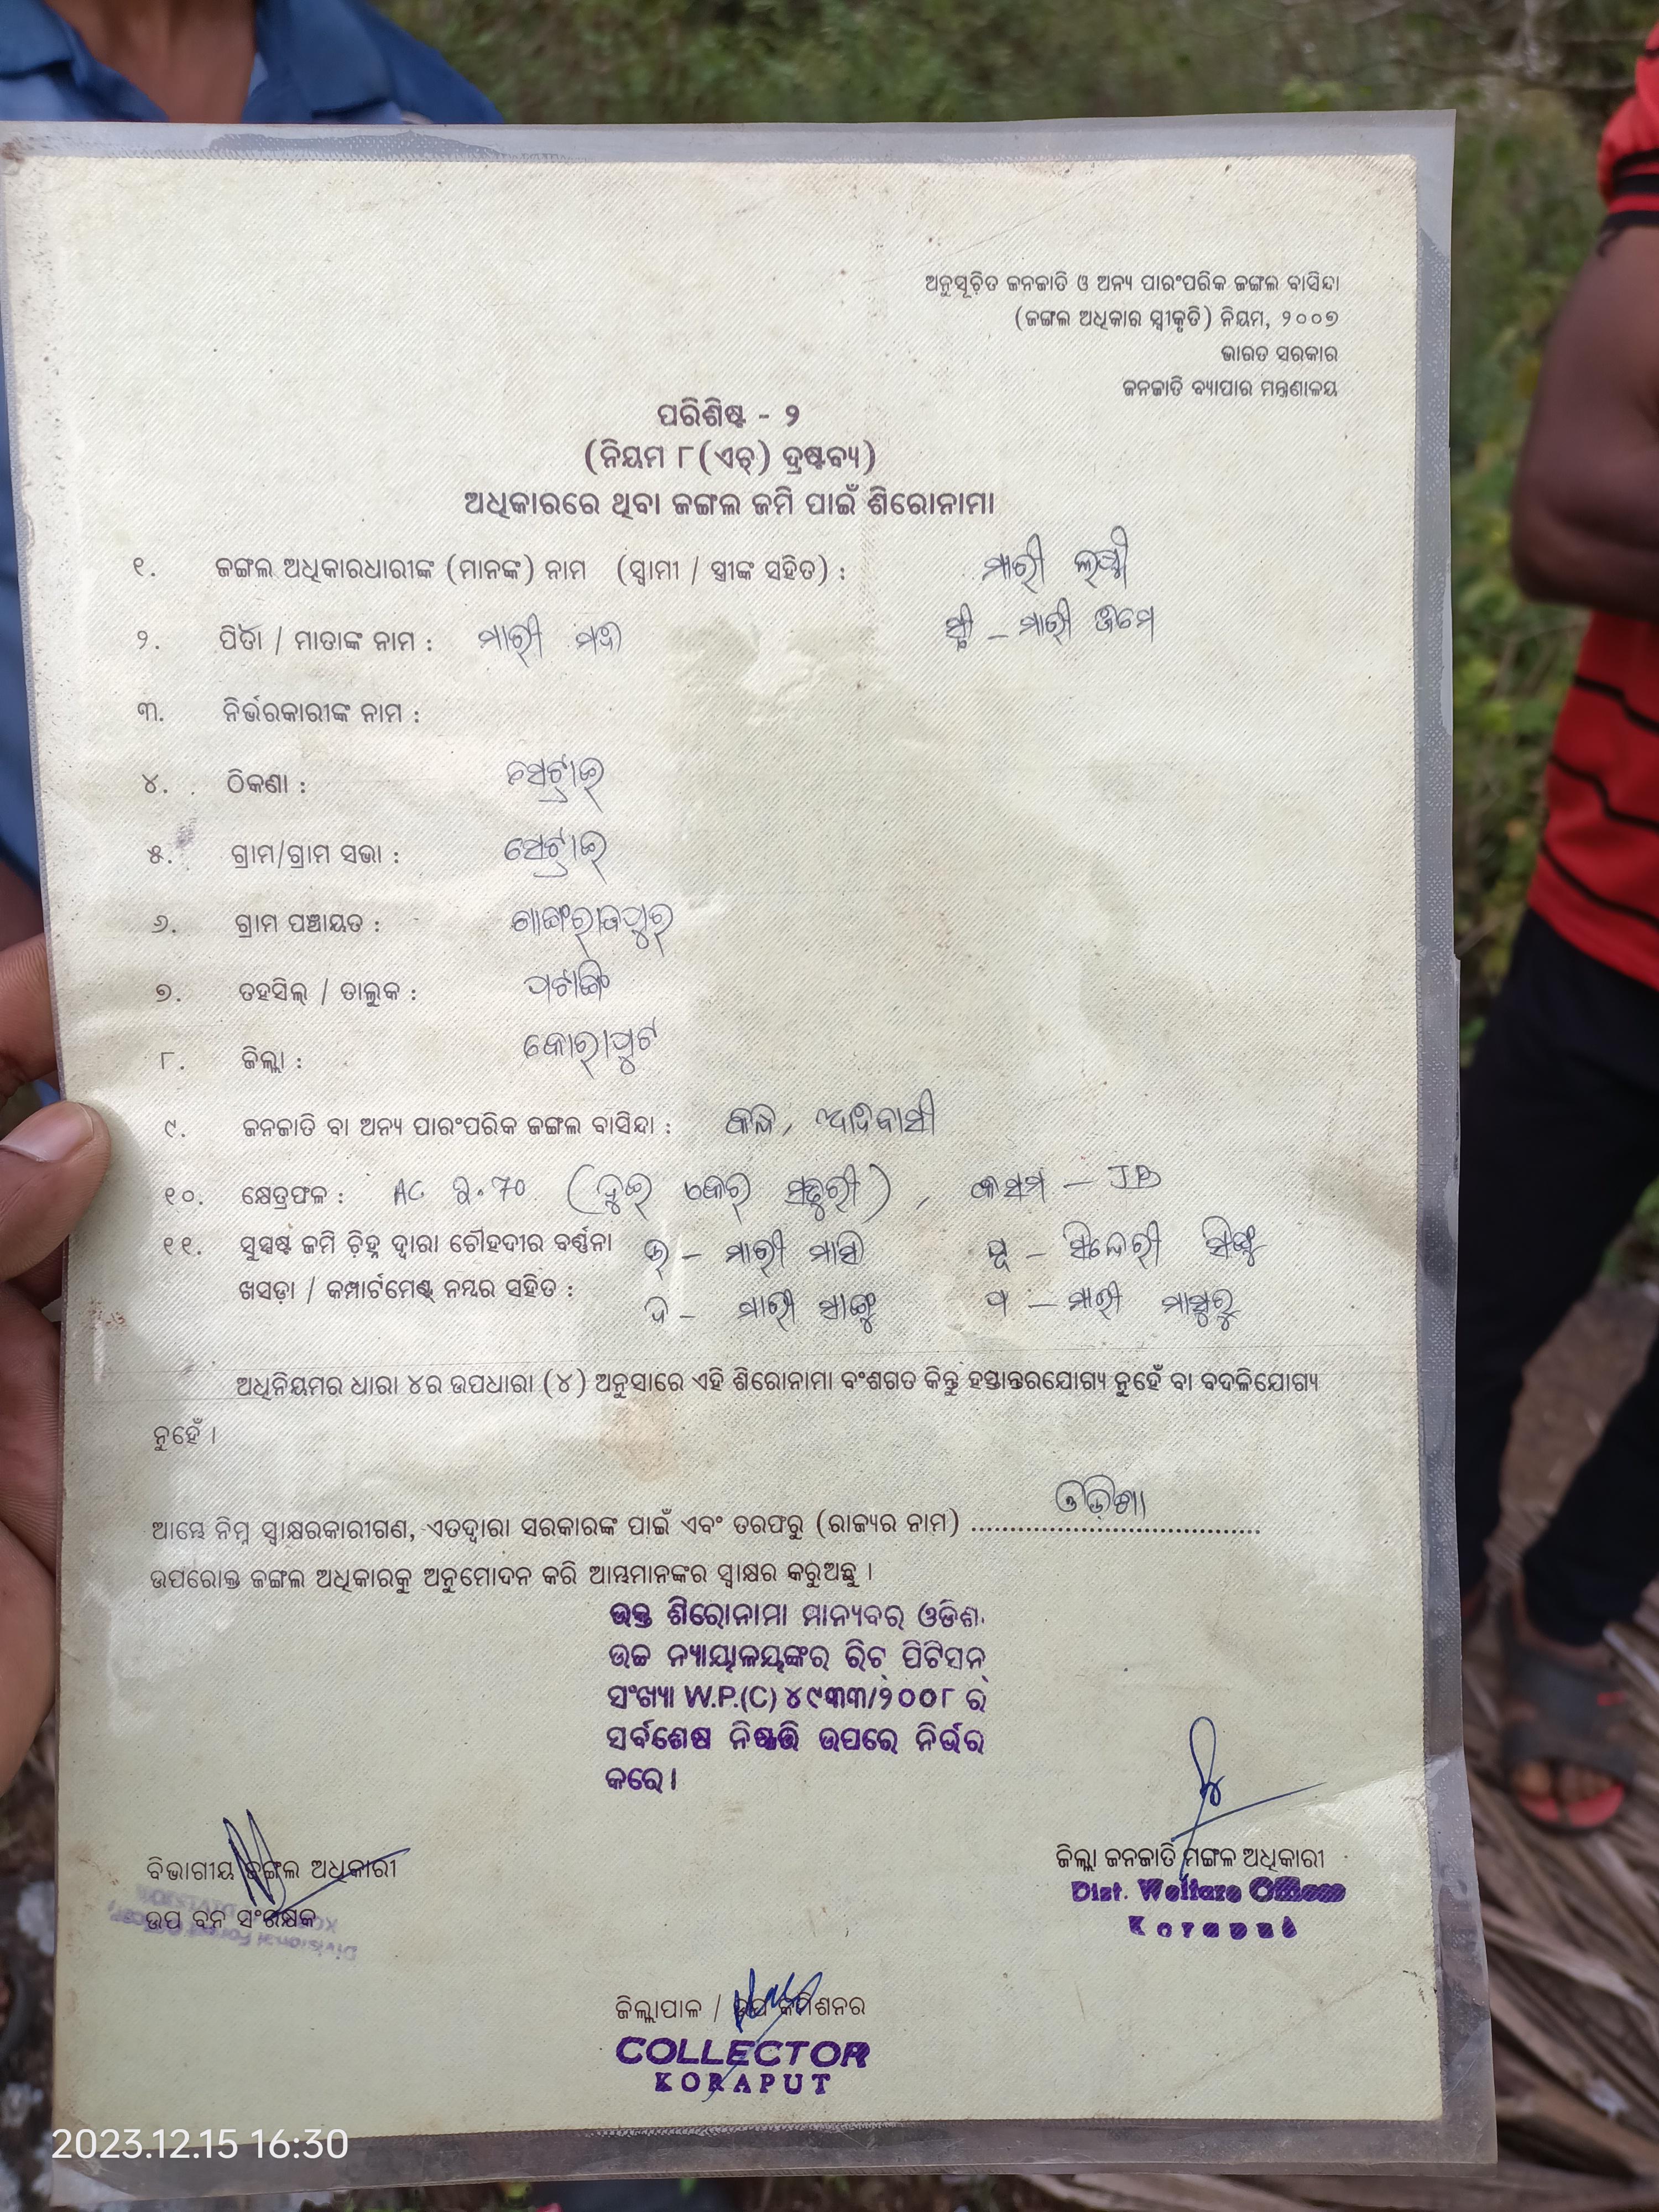 ଅନୁସୂଚିତ ଜନଜାତି ଓ ଅନ୍ୟ ପାରଂପରିକ ଜଙ୍ଗଲ ବାସିନ୍ଦା
(ଜଙ୍ଗଲ ଅଧିକାର ସ୍ୱୀକୃତି) ନିୟମ, ୨୦୦୭
ଭାରତ ସରକାର
ଜନଜାତି ବ୍ୟାପାର ମନ୍ତ୍ରଣାଳୟ
ପରିଶିଷ୍ଟ - ୨
(ନିୟମ ୮(ଏଚ୍) ଦ୍ରଷ୍ଟବ୍ୟ)
ଅଧିକାରରେ ଥିବା ଜଙ୍ଗଲ ଜମି ପାଇଁ ଶିରୋନାମା
୧. ଜଙ୍ଗଲ ଅଧିକାରଧାରୀଙ୍କ (ମାନଙ୍କ) ନାମ (ସ୍ୱାମୀ / ସ୍ତ୍ରୀଙ୍କ ସହିତ) : ମାରୀ
ସ୍ତ୍ରୀ - ମାରୀ
୨. ପିତା / ମାତାଙ୍କ ନାମ : ମାରୀ
୩. ନିର୍ଭରକାରୀଙ୍କ ନାମ :
୪. ଠିକଣା :
୫. ଗ୍ରାମ/ଗ୍ରାମ ସଭା :
୬. ଗ୍ରାମ ପଞ୍ଚାୟତ :
୭. ତହସିଲ୍ / ତାଲୁକ : ପଟାଙ୍ଗି
୮. ଜିଲ୍ଲା : କୋରାପୁଟ
୯. ଜନଜାତି ବା ଅନ୍ୟ ପାରଂପରିକ ଜଙ୍ଗଲ ବାସିନ୍ଦା : କନ୍ଧ, ଆଦିବାସୀ
୧୦. କ୍ଷେତ୍ରଫଳ : AC ୨.୭୦ (ଦୁଇ ), କିସମ - JB
୧୧. ସୁସ୍ପଷ୍ଟ ଜମି ଚିହ୍ନ ଦ୍ୱାରା ଚୌହଦୀର ବର୍ଣ୍ଣନା ଉ - ମାରୀ ପୂ -
ଖସଡ଼ା / କମ୍ପାର୍ଟମେଣ୍ଟ୍ ନମ୍ବର ସହିତ : ଦ - ମାରୀ ପ - ମାରୀ
ଅଧିନିୟମର ଧାରା ୪ର ଉପଧାରା (୪) ଅନୁସାରେ ଏହି ଶିରୋନାମା ବଂଶଗତ କିନ୍ତୁ ହସ୍ତାନ୍ତରଯୋଗ୍ୟ ନୁହେଁ ବା ବଦଳିଯୋଗ୍ୟ
ନୁହେଁ ।
ଓଡ଼ିଶା
ଆମ୍ଭେ ନିମ୍ନ ସ୍ୱାକ୍ଷରକାରୀଗଣ, ଏତଦ୍ୱାରା ସରକାରଙ୍କ ପାଇଁ ଏବଂ ତରଫରୁ (ରାଜ୍ୟର ନାମ) ........................................
ଉପରୋକ୍ତ ଜଙ୍ଗଲ ଅଧିକାରକୁ ଅନୁମୋଦନ କରି ଆମ୍ଭମାନଙ୍କର ସ୍ୱାକ୍ଷର କରୁଅଛୁ ।
ଉକ୍ତ ଶିରୋନାମା ମାନ୍ୟବର ଓଡିଶା
ଉଚ୍ଚ ନ୍ୟାୟାଳୟଙ୍କର ରିଟ୍ ପିଟିସନ୍
ସଂଖ୍ୟା W.P.(C) ୪୯୩୩/୨୦୦୮ ର
ସର୍ବଶେଷ ନିଷ୍ପତ୍ତି ଉପରେ ନିର୍ଭର
କରେ ।
ବିଭାଗୀୟ ଜଙ୍ଗଲ ଅଧିକାରୀ
ଉପ ବନ ସଂରକ୍ଷକ
ଜିଲ୍ଲା ଜନଜାତି ମଙ୍ଗଳ ଅଧିକାରୀ
Dist. Welfare Officer
Koraput
ଜିଲ୍ଲାପାଳ / ଉପ କମିଶନର
COLLECTOR
KORAPUT
2023.12.15 16:30